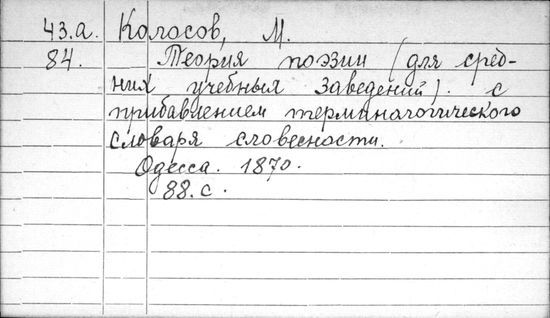 43.а. Колосов, М.
84. Теория поэзии (для сред-
них учебных заведений). с
прибавлением терминологического
словаря словесности.
Одесса. 1870.
88. с.